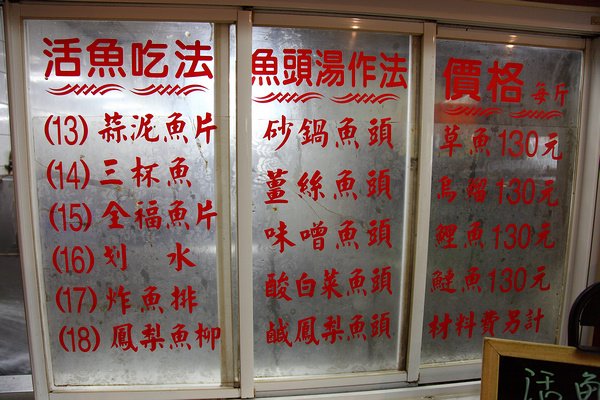 活魚吃法
(13) 蒜泥魚片
(14) 三杯魚
(15) 全福魚片
(16) 划 水
(17) 炸魚排
(18) 鳳梨魚柳
魚頭湯作法
砂鍋魚頭
薑絲魚頭
味噌魚頭
酸白菜魚頭
鹹鳳梨魚頭
價格 每斤
草魚130元
烏鰡130元
鯉魚130元
鰱魚130元
材料費另計
活魚